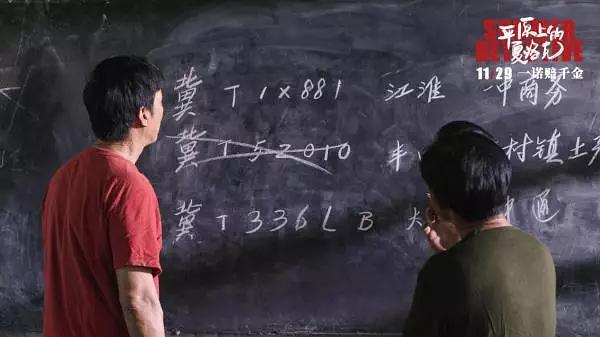 平原上的
夏洛克
11.29 一诺赔千金
冀T1X881 江淮 商务
冀T52010 丰 村镇土
冀T336LB 大 中通